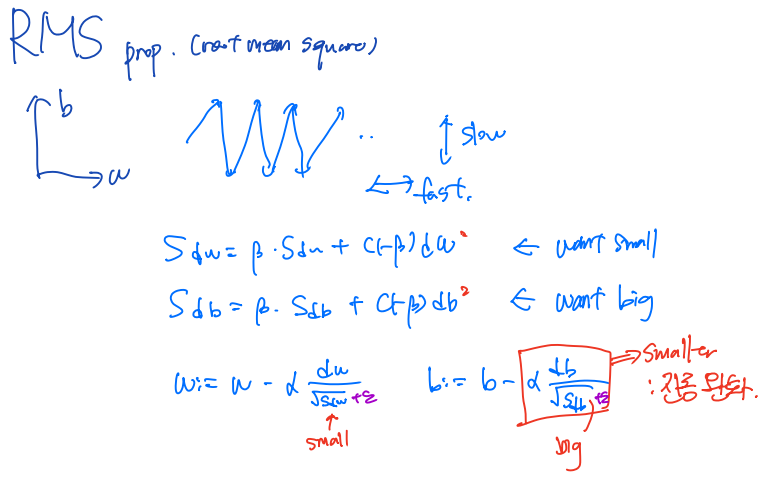 RMS prop. (root mean square)
b
w
..
slow
fast.
Sdw = β · Sdw + (1-β) dw² ← want small
Sdb = β · Sdb + (1-β) db² ← want big
w := w - α dw / √Sdw + ε
b := b - α db / √Sdb + ε ⇒ smaller
: 진동 완화.
small
big